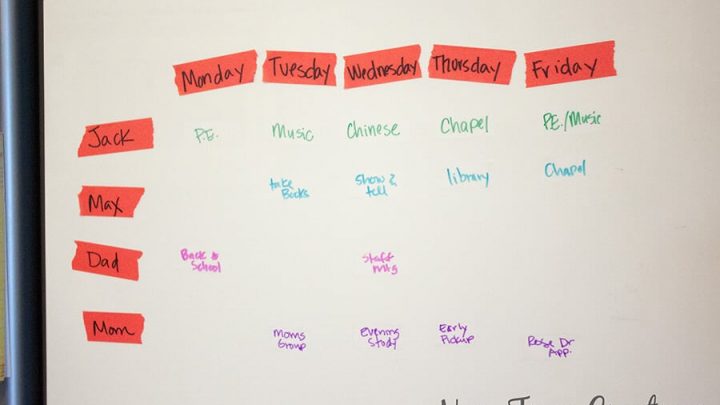 Monday Tuesday Wednesday Thursday Friday
Jack P.E. Music Chinese Chapel P.E./Music
Max take Books Show & tell library Chapel
Dad Back to School Staff mtg
Mom Moms Group Evening Study Early Pickup Rose Dr App.